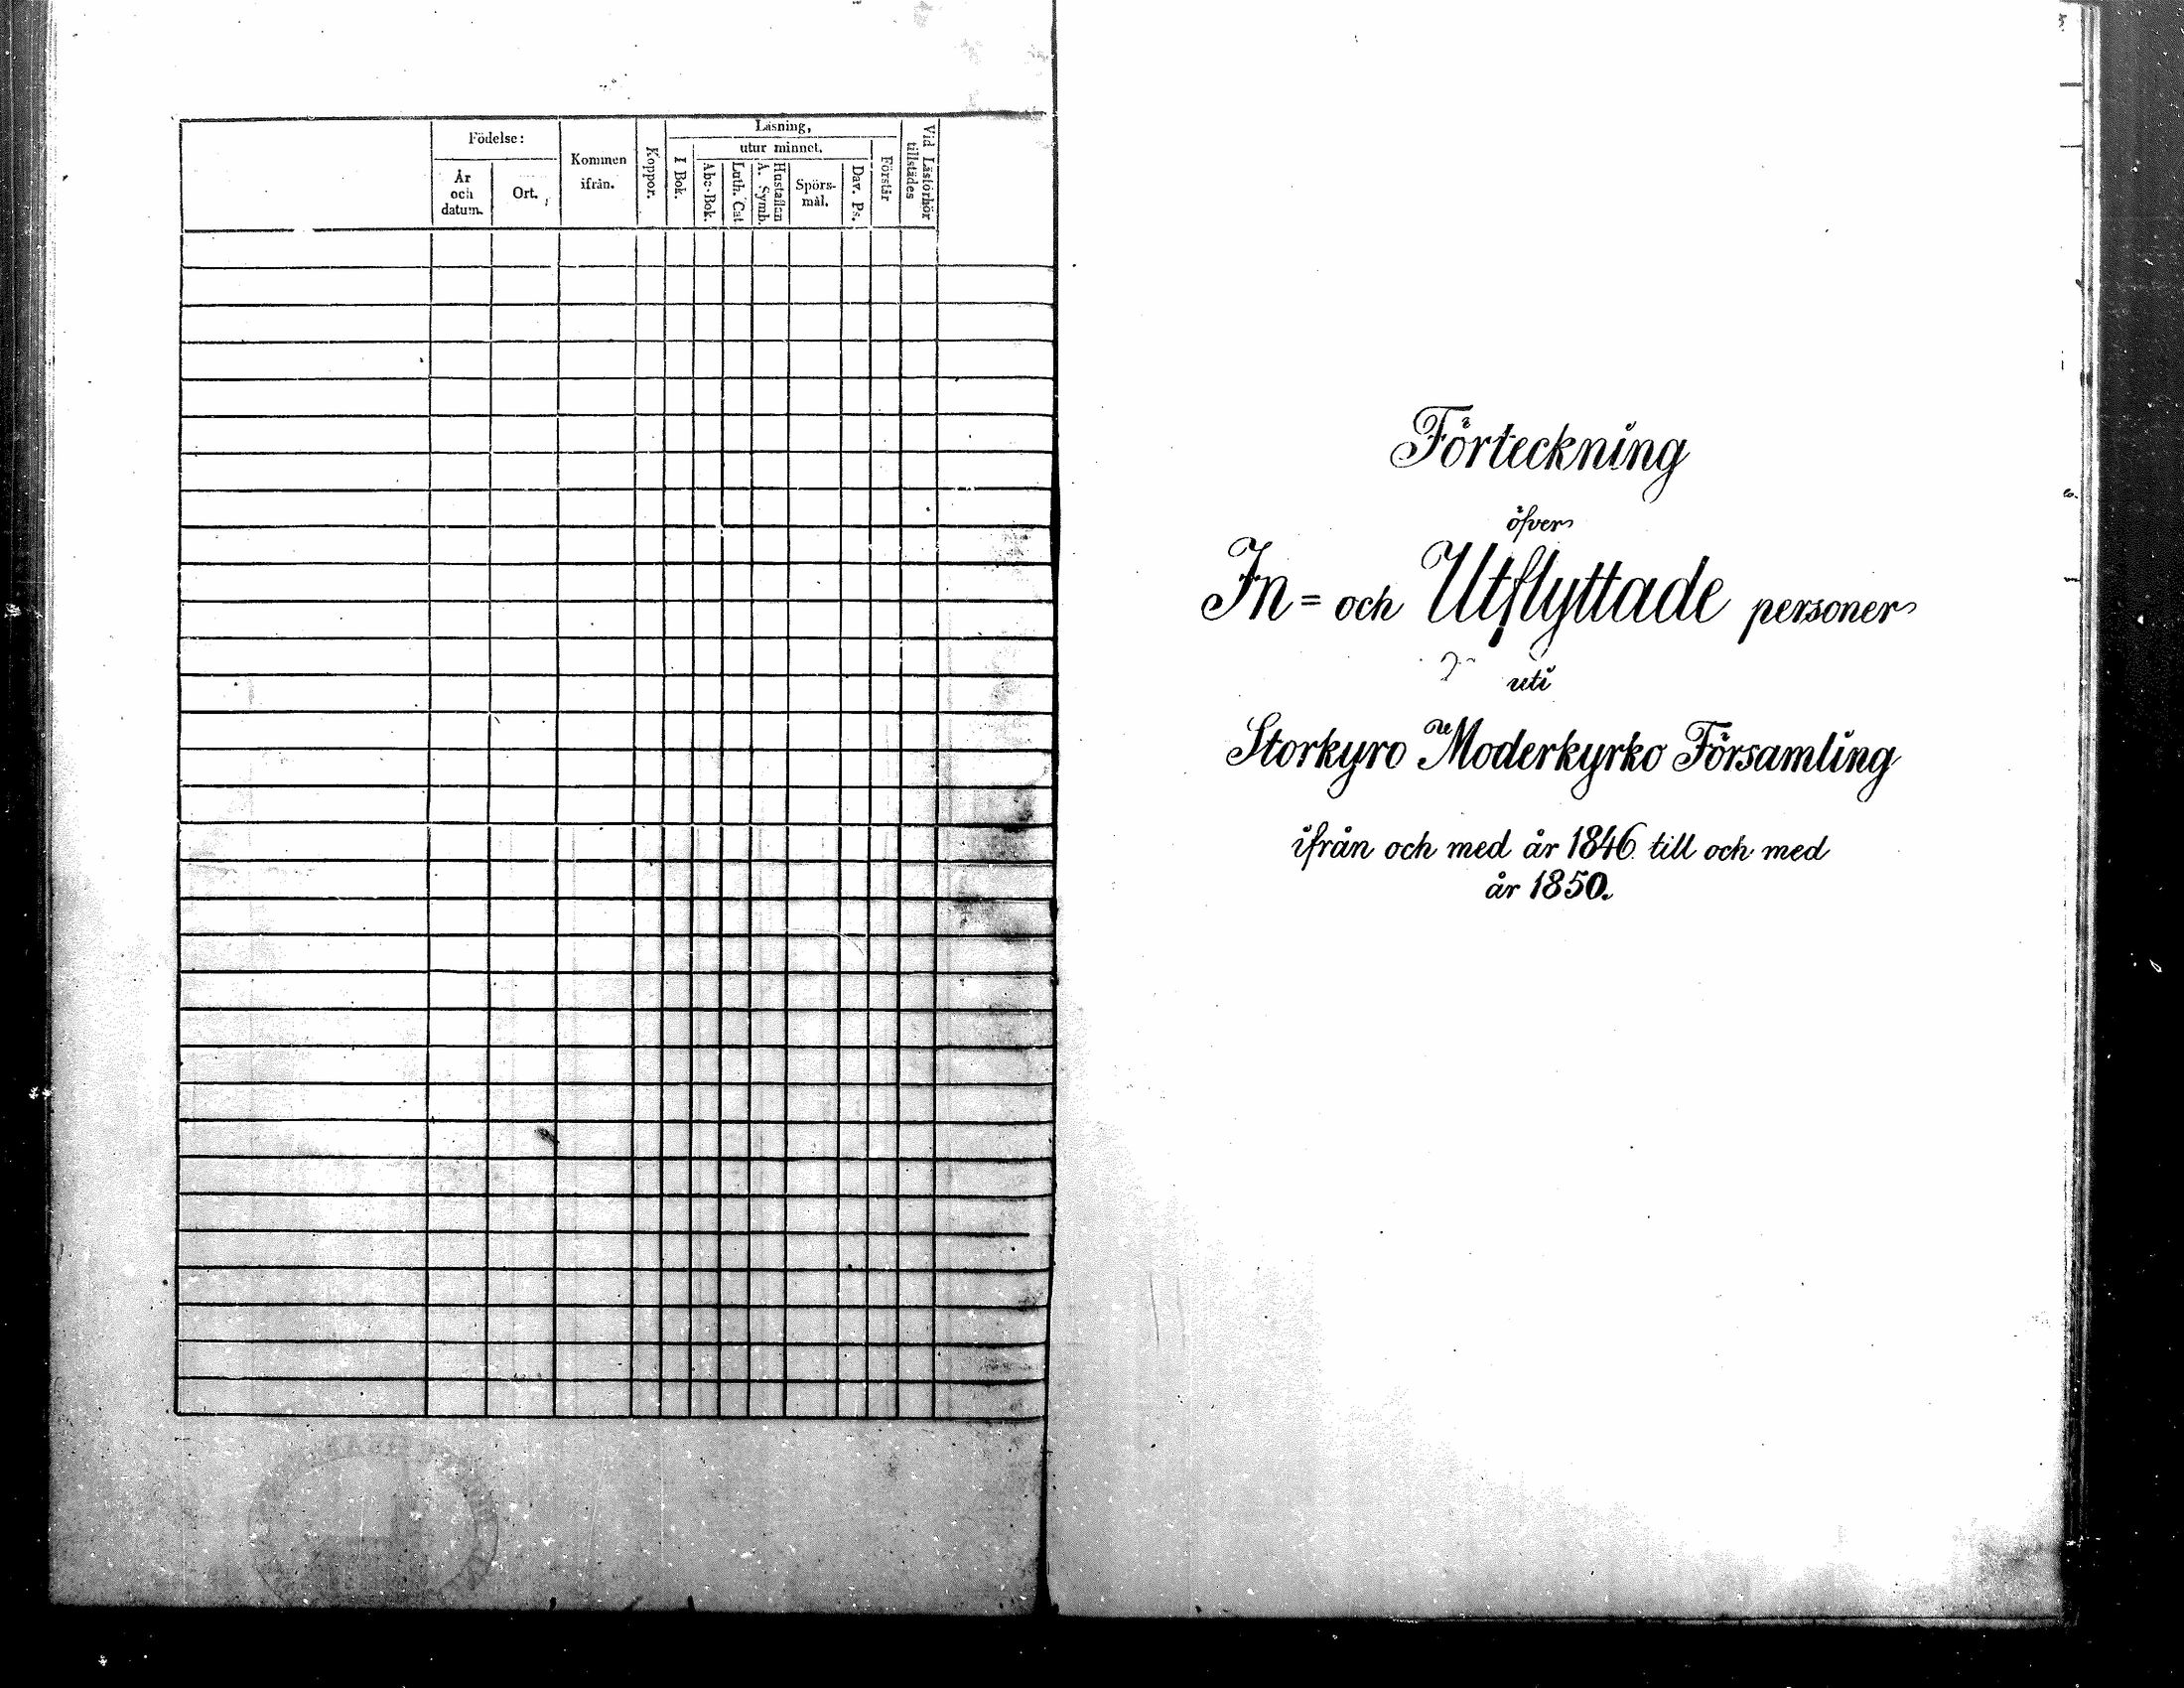 Födelse:
År
och
datum.
Ort.
Kommen
ifrån.
Koppor.
Läsning,
I Bok.
utur minnet.
Abc-Bok.
Luth. Cat
Hustaflan
A. Symb.
Spörs-
mål.
Dav. Ps.
Förstår
Vid Läsförhör
tillstädes
Förteckning
öfver
In= och Utflyttade personer
uti
Storkyro Moderkyrko Församling
ifrån och med år 1846 till och med
år 1850.